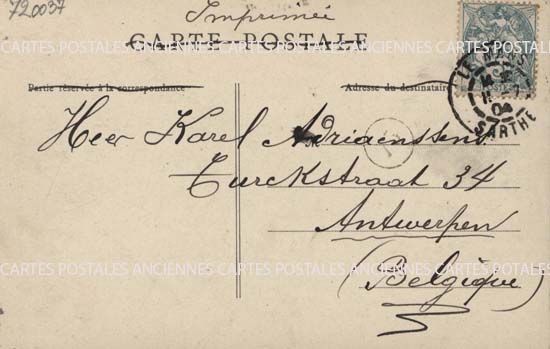 720037
Imprimée
CARTE POSTALE
Partie réservée à la correspondance
Adresse du destinataire
LE MANS
04
SARTHE
Heer Karel Adriaenssens
Turckstraat 34
Antwerpen
(Belgique)
CARTES POSTALES ANCIENNES CARTES POSTALES ANCIENNES CARTES POSTALES
CARTES POSTALES ANCIENNES CARTES POSTALES ANCIENNES CARTES POSTALES